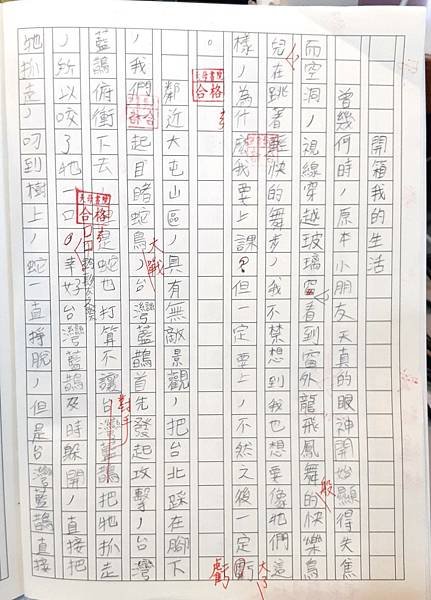 開箱我的生活
曾幾何時，原本小朋友天真的眼神開始顯得失焦
而空洞，視線穿越玻璃窗看到窗外龍飛鳳舞的快樂鳥
般
兒在跳著輕快的舞步，我不禁想到我也想要像牠們這
樣，為什麼我要上課？但一定要上，不然之後一定虧大了
。
合格
鄰近大屯山區，具有無敵景觀，把台北踩在腳下
，我們一起目睹蛇鳥大戰，台灣藍鵲首先發起攻擊，台灣
藍鵲俯衝下去，但是蛇也打算不讓台灣藍鵲把牠抓走
對手
合格
，所以咬了牠一口。幸好台灣藍鵲及時躲開，直接把
牠抓走，叼到樹上，蛇一直掙脫，但是台灣藍鵲直接